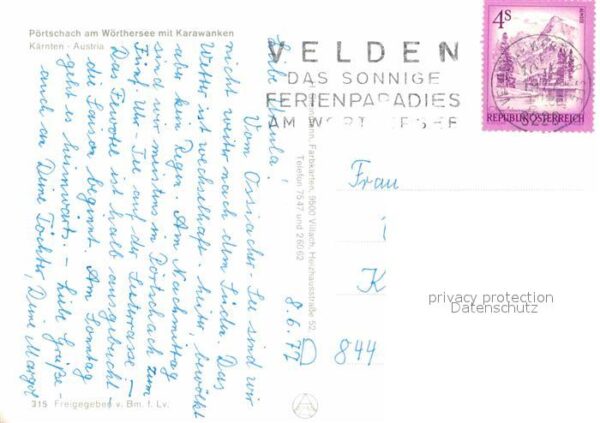 Pörtschach am Wörthersee mit Karawanken
Kärnten - Austria
VELDEN
DAS SONNIGE
FERIENPARADIES
AM WÖRTHERSEE
4S
REPUBLIK ÖSTERREICH
8.6.77
Vom Ossiacher-See sind wir
nicht weiter nach dem Süden. Das
Wetter ist wechselhaft - heiter, bewölkt
aber kein Regen. Am Nachmittag
sind wir meistens in Pörtschach zum
Fünf-Uhr-Tee auf der Seeterrasse -
Das Parkhotel ist halb ausgebucht -
die Saison beginnt. Am Sonntag
geht es heimwärts. - Liebe Grüße -
auch an Deine Töchter, Deine Margot
Farbkarten, 9500 Villach, Heizhausstraße 52,
Telefon 7547 und 26062
Frau
i
K
D 844
privacy protection
Datenschutz
315 Freigegeben v. Bm. f. Lv.